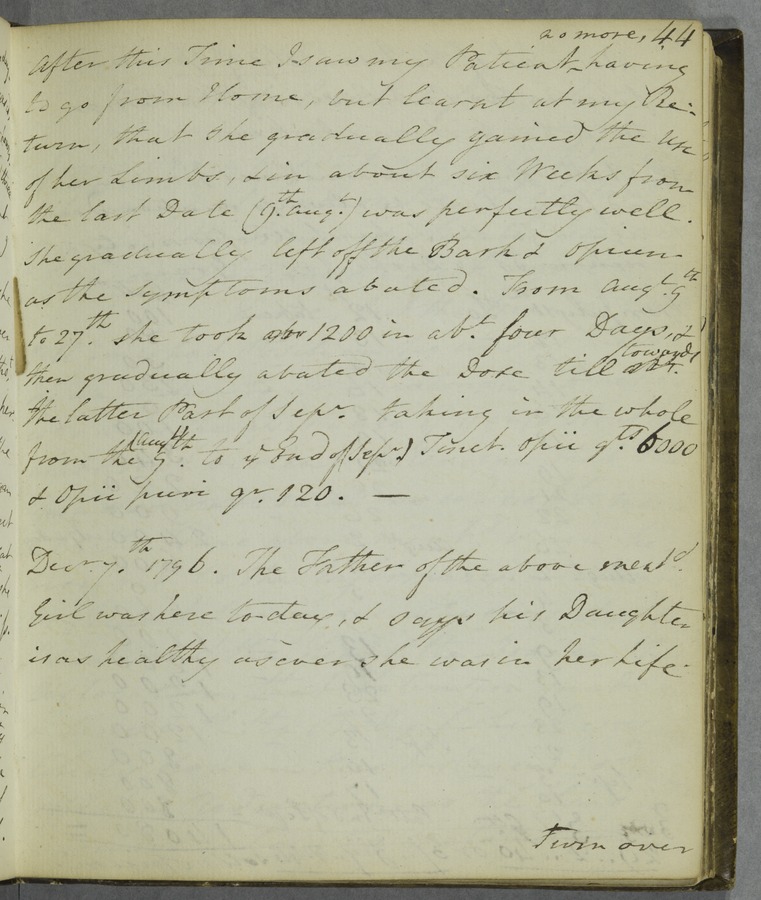 no more, 44
After this Time I saw my Patient having
to go from Home, but learnt at my Re-
turn, that she gradually gained the use
of her Limbs, & in about six Weeks from
the last Date (9th. augt.) was perfectly well.
She gradually left off the Bark & opium
as the symptoms abated. From augt. 9th
to 27th. she took 1200 in abt. four Days, &
then gradually abated the Dose till towards
the latter Part of Sepr. taking in the whole
from the augt 9th. to ye End of (Sepr.) Tinct. opii gts. 6000
& Opii puri gr. 120. —
Decr. 7.th 1796. The Father of the above mend.
Girl was here to-day, & says his Daughter
is as healthy as ever she was in her Life.
Turn over